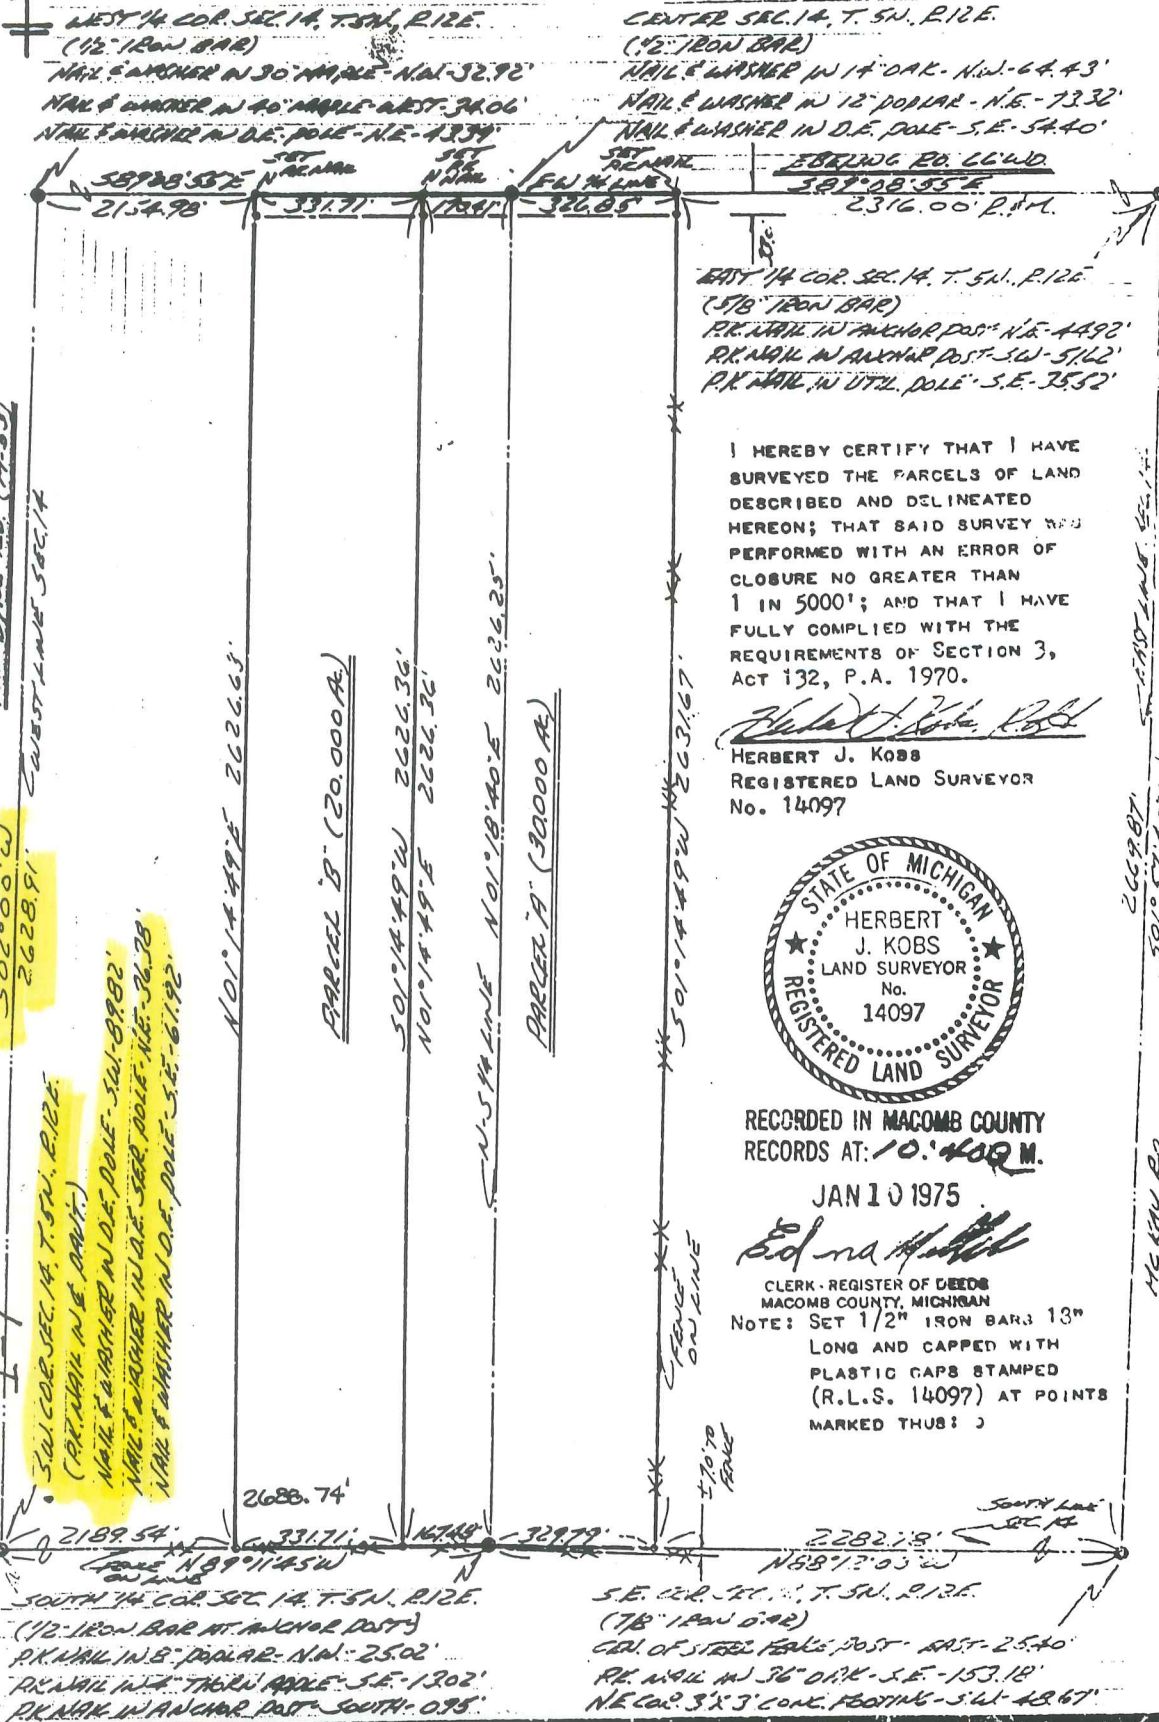 WEST 1/4 COR. SEC. 14, T.5N., R.12E.
(1/2" IRON BAR)
NAIL & WASHER IN 30" MAPLE - N.W. - 32.92'
NAIL & WASHER IN 40" MAPLE - WEST - 34.06'
NAIL & WASHER IN D.E. POLE - N.E. - 43.39'
CENTER SEC. 14, T.5N. R.12E.
(1/2" IRON BAR)
NAIL & WASHER IN 14" OAK - N.W. - 64.43'
NAIL & WASHER IN 12" POPLAR - N.E. - 73.32'
NAIL & WASHER IN D.E. POLE - S.E. - 54.40'
SET P.K. NAIL
SET PK NAIL
SET P.K. NAIL
EBELING RD. 66' WD.
S89°08'55"E
2154.98'
331.71'
170.41'
E-W 1/4 LINE
326.85'
S89°08'55"E
2316.00' R.&M.
33.0'
EAST 1/4 COR. SEC. 14, T.5N., R.12E
(5/8" IRON BAR)
P.K. NAIL IN ANCHOR POST - N.E. - 44.92'
P.K. NAIL IN ANCHOR POST - S.W. - 51.62'
P.K. NAIL IN UTIL. POLE - S.E. - 35.52'
I HEREBY CERTIFY THAT I HAVE
SURVEYED THE PARCELS OF LAND
DESCRIBED AND DELINEATED
HEREON; THAT SAID SURVEY WAS
PERFORMED WITH AN ERROR OF
CLOSURE NO GREATER THAN
1 IN 5000'; AND THAT I HAVE
FULLY COMPLIED WITH THE
REQUIREMENTS OF SECTION 3,
ACT 132, P.A. 1970.
Herbert J. Kobs, R.L.S.
HERBERT J. KOBS
REGISTERED LAND SURVEYOR
No. 14097
STATE OF MICHIGAN
HERBERT
J. KOBS
LAND SURVEYOR
No.
14097
REGISTERED LAND SURVEYOR
RECORDED IN MACOMB COUNTY
RECORDS AT: 10:40 A M.
JAN 10 1975
Edna
CLERK - REGISTER OF DEEDS
MACOMB COUNTY, MICHIGAN
NOTE: SET 1/2" IRON BARS 18"
LONG AND CAPPED WITH
PLASTIC CAPS STAMPED
(R.L.S. 14097) AT POINTS
MARKED THUS:
WEST LINE SEC. 14
S02°00'00"W
2628.91'
N01°14'49"E 2626.63'
PARCEL "B" (20.000 Ac.)
S01°14'49"W 2626.36'
N01°14'49"E 2626.36'
N-S 1/4 LINE N01°18'40"E 2626.25'
PARCEL "A" (30.000 Ac.)
S01°14'49"W 2631.67'
FENCE
ON LINE
EAST LINE SEC. 14
2669.87'
McKAY RD.
S.W. COR. SEC. 14, T.5N., R.12E.
(P.K. NAIL IN € PAV'T.)
NAIL & WASHER IN D.E. POLE - S.W. - 89.82'
NAIL & WASHER IN D.E. SER. POLE - N.E. - 36.38'
NAIL & WASHER IN D.E. POLE - S.E. - 61.92'
±7.0' TO
FENCE
2688.74'
2189.54'
331.71'
167.49'
329.79'
2282.18'
SOUTH LINE
SEC. 14
FENCE
ON LINE
N89°11'45"W
N88°12'03"W
SOUTH 1/4 COR. SEC. 14, T.5N., R.12E.
(1/2" IRON BAR AT ANCHOR POST)
P.K. NAIL IN 8" POPLAR - N.W. - 25.02'
P.K. NAIL IN 4" THORN APPLE - S.E. - 13.02'
P.K. NAIL IN ANCHOR POST - SOUTH - 0.95'
S.E. COR. SEC. T.5N., R.12E.
(7/8" IRON BAR)
CEN. OF STEEL FENCE POST - EAST - 25.40'
P.K. NAIL IN 36" OAK - S.E. - 153.18'
N.E. COR. 3' X 3' CONC. FOOTING - S.W. - 48.67'